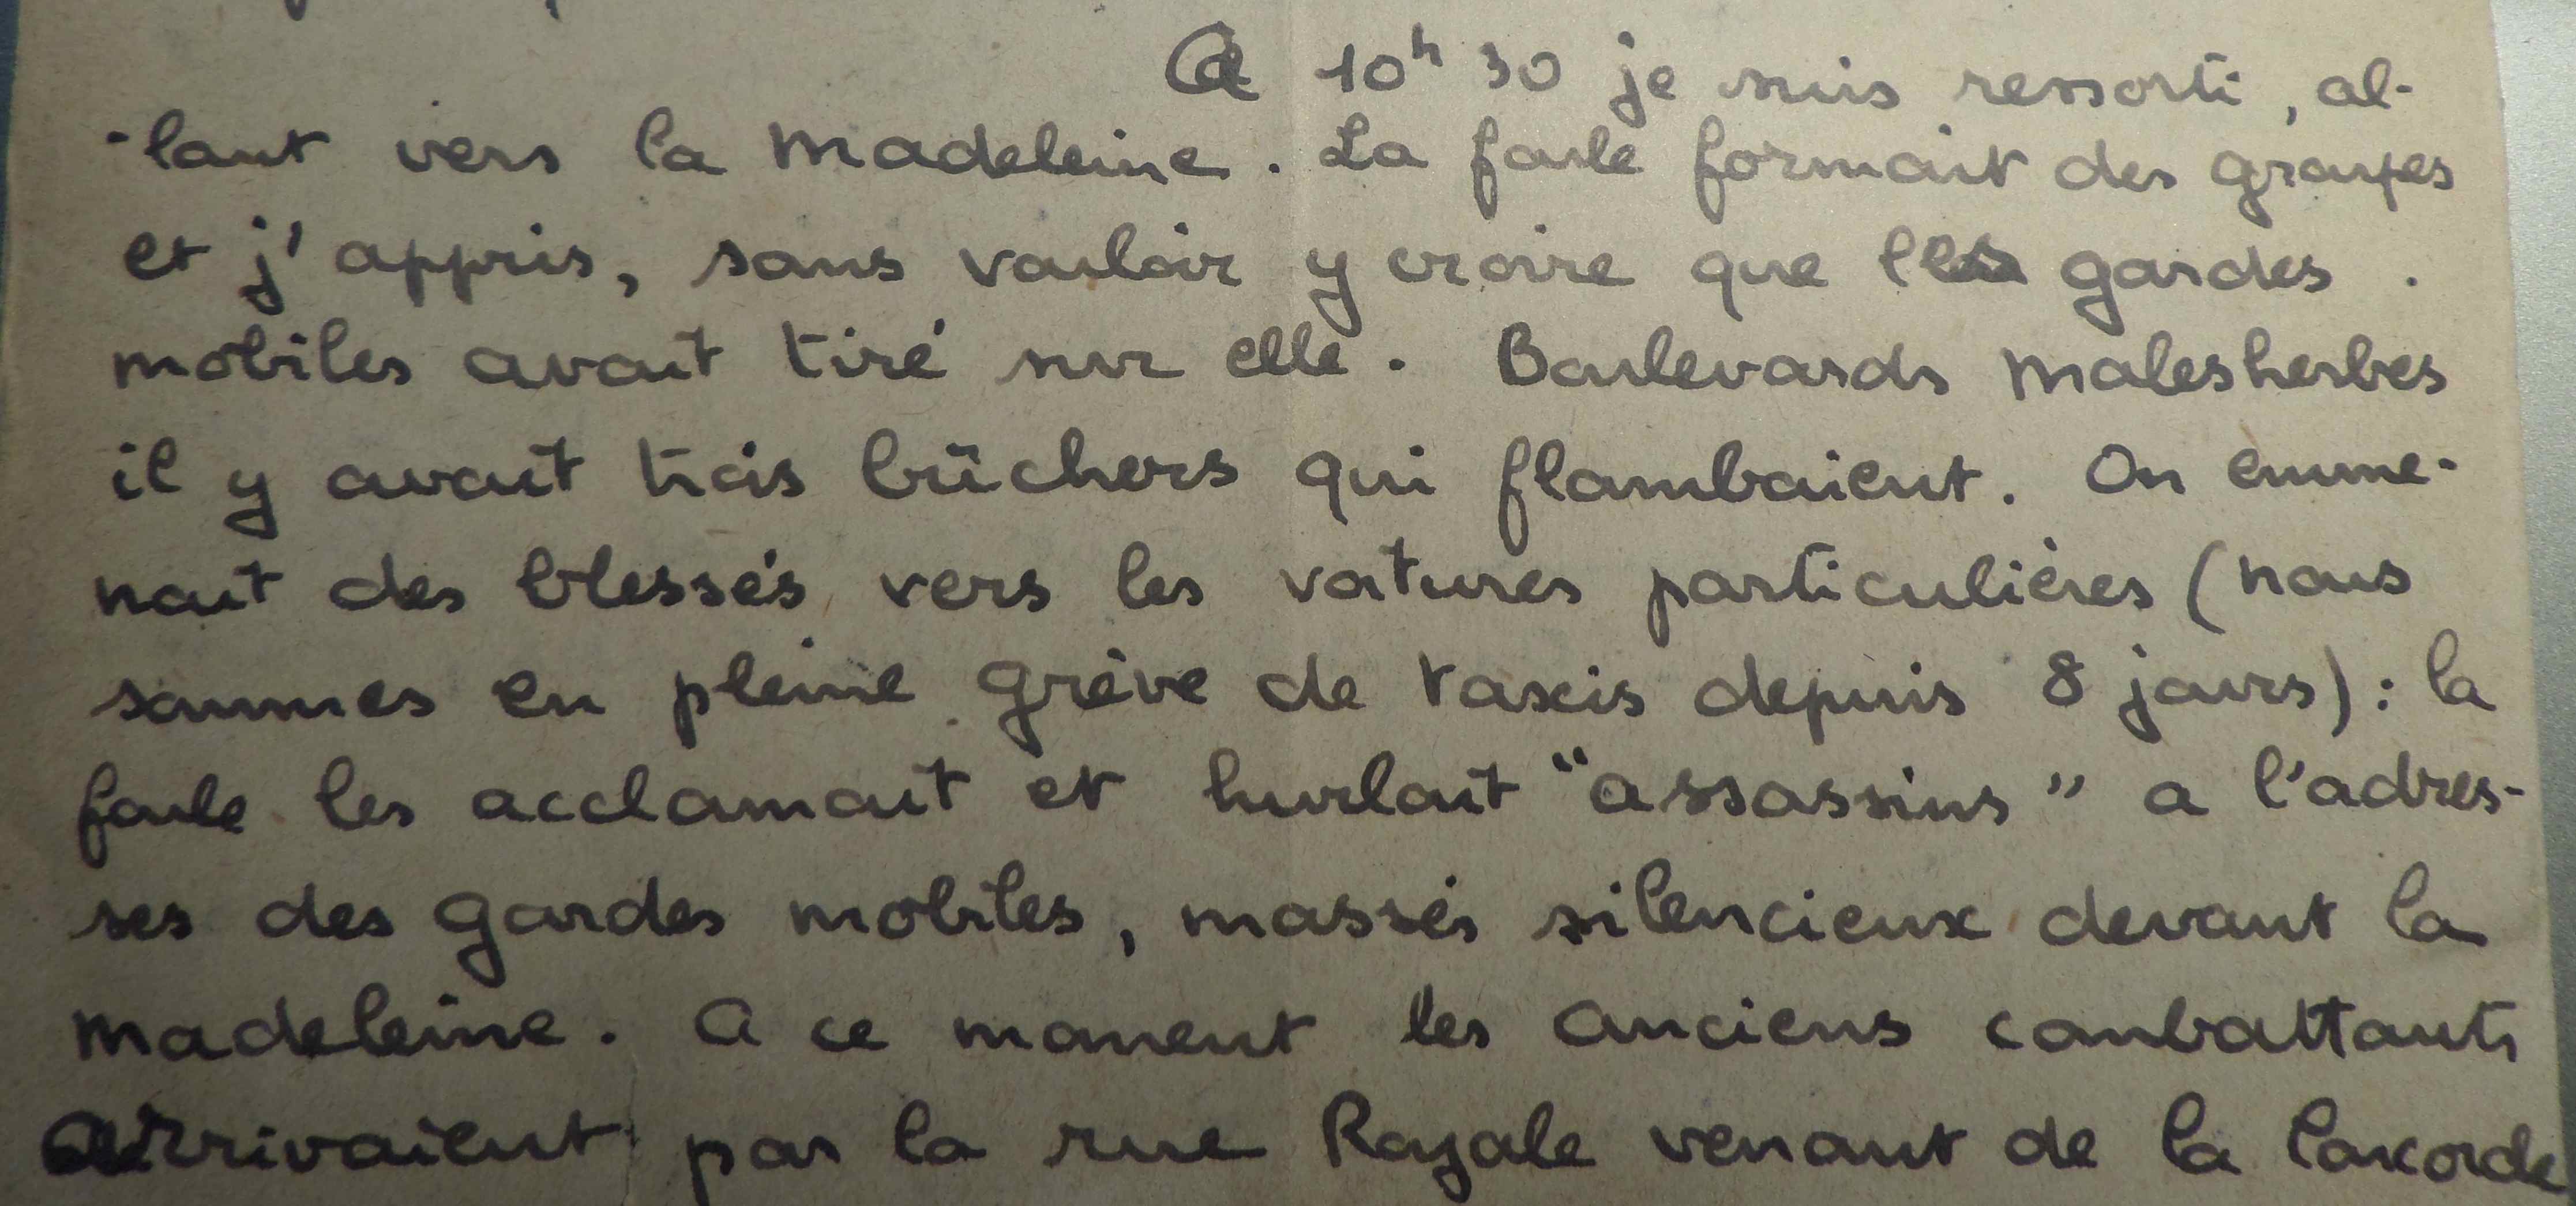 A 10h 30 je suis ressorti, al-
-lant vers la Madeleine. La foule formait des groupes
et j'appris, sans vouloir y croire que les gardes
mobiles avait tiré sur elle. Boulevards Malesherbes
il y avait trois bûchers qui flambaient. On emme-
nait des blessés vers les voitures particulières (nous
sommes en pleine grève de taxis depuis 8 jours) : la
foule les acclamait et hurlait "assassins" a l'adres-
ses des gardes mobiles, massés silencieux devant la
Madeleine. A ce moment les anciens combattants
arrivaient par la rue Royale venant de la Concorde